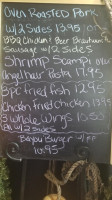 Oven Roasted Pork
w/2 Sides 13.95
BBQ Chicken & Beer Bratwurst
Sausage w/2 sides
Shrimp Scampi
Angel hair Pasta 17.95
8pc fried fish 12.95
Chicken fried chicken 13.95
3 whole Wings 13.55
w/2 sides
Bayou Burger
10.95